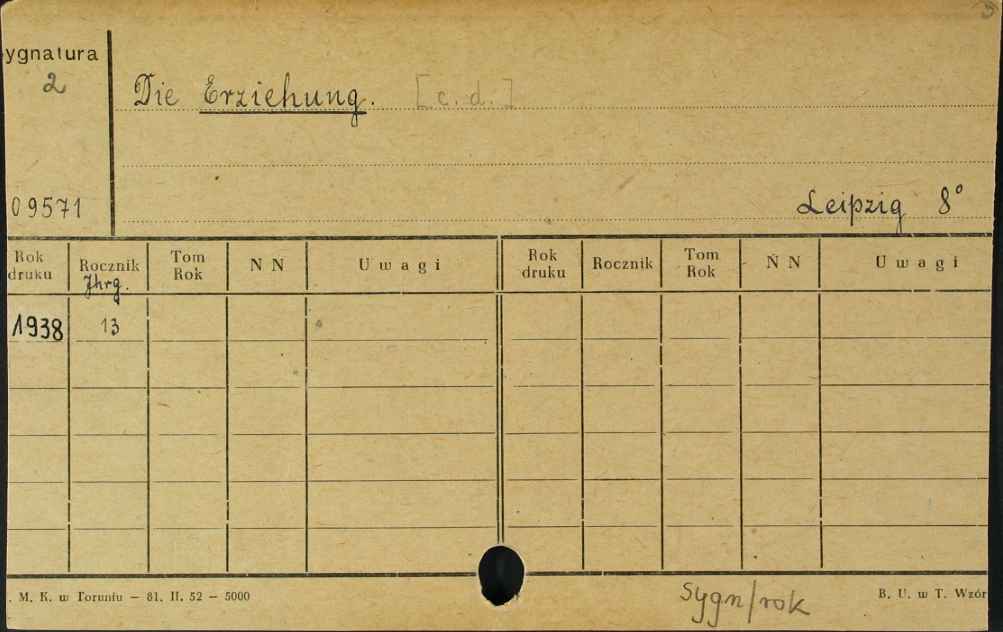 ygnatura
2
Die Erziehung. [c.d.]
09571
Leipzig 8°
Rok druku Rocznik Jhrg. Tom Rok N N Uwagi Rok druku Rocznik Tom Rok N N Uwagi
1938 13
. M. K. w Toruniu — 81. II. 52 — 5000
Sygn/rok
B. U. w T. Wzór